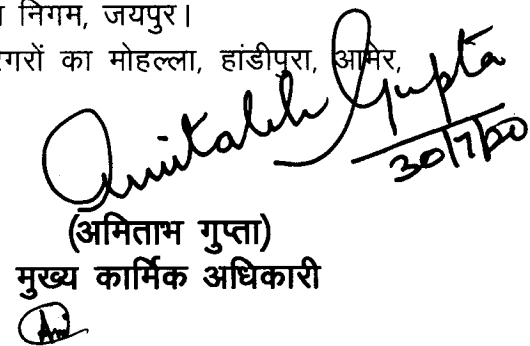 निगम, जयपुर।
का मोहल्ला, हांडीपुरा, आमेर,
Amitabh Gupta
30/7/20
(अमिताभ गुप्ता)
मुख्य कार्मिक अधिकारी